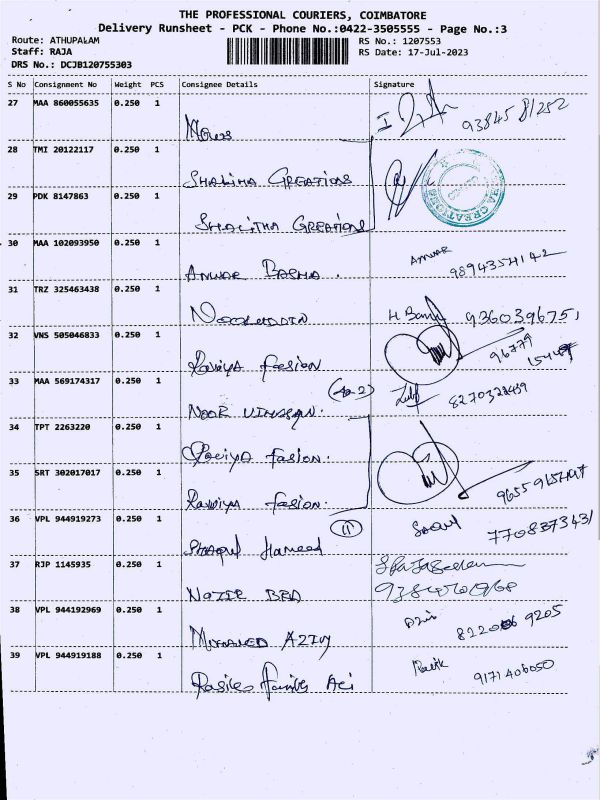 THE PROFESSIONAL COURIERS, COIMBATORE
Delivery Runsheet - PCK - Phone No.:0422-3505555 - Page No.:3
Route: ATHUPALAM RS No.: 1207553
Staff: RAJA RS Date: 17-Jul-2023
DRS No.: DCJB120755303
S No Consignment No Weight PCS Consignee Details Signature
27 MAA 860055635 0.250 1
93845 81282
28 TMI 20122117 0.250 1
SHALIHA CREATIONS
29 PDK 8147863 0.250 1
SHALITHA CREATIONS
CREATIONS
30 MAA 102093950 0.250 1
ANWAR BASHA. ANWAR 9894354142
31 TRZ 325463438 0.250 1
NOORUDDIN 9360396751
32 VNS 505046833 0.250 1
Raviya Fasion 96779
33 MAA 569174317 0.250 1
NOOR 8270328459
34 TPT 2263220 0.250 1
Raviya fasion.
35 SRT 302017017 0.250 1
Raviya fasion.
36 VPL 944919273 0.250 1
Shaqul Hameed 11 7708373431
37 RJP 1145935 0.250 1
38 VPL 944192969 0.250 1
MOHAMED 9205
39 VPL 944919188 0.250 1
Ali 9171406050